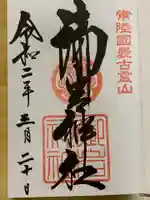 常陸國最古霊山
御岩神社
令和二年三月二十日